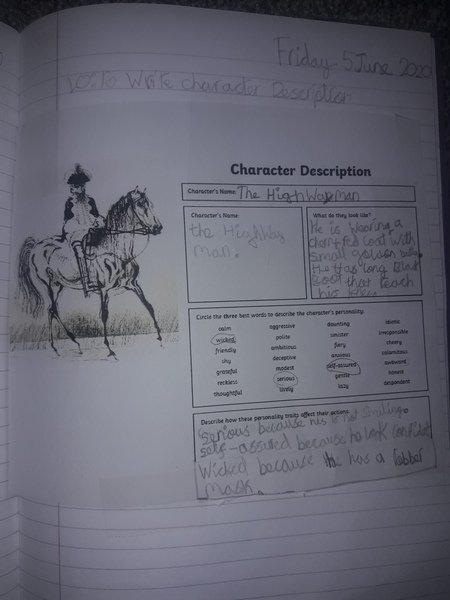 Friday 5 June 2020
LO: To Write character Description
Character Description
Character's Name: The HighWayman
Character's Name:
the HighWay
man.
What do they look like?
He is wearing a
cherry red coat with
small golden
He Has long Black
Boot that reach
his
Circle the three best words to describe the character's personality:
calm aggressive daunting idiotic
wicked polite sinister irresponsible
friendly ambitious fiery cheery
shy deceptive anxious calamitous
grateful modest self-assured awkward
reckless serious gentle honest
thoughtful lively lazy despondent
Describe how these personality traits affect their actions:
Serious because his is not Smiling.
self-assured because he look confident
Wicked because he has a robber
mask.